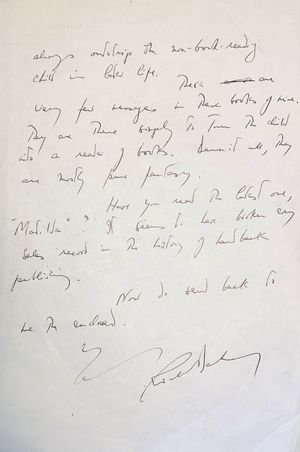 always outstrip the non-book-ready
child in later life. There are
very few messages in these books of mine.
They are there simply to turn the child
into a reader of books. Damn it all, they
are mostly pure fantasy.
Have you read the latest one,
"Matilda"? It seems to have broken every
sales record in the history of hardback
publishing.
Now do send back to
me the enclosed.
Roald Dahl